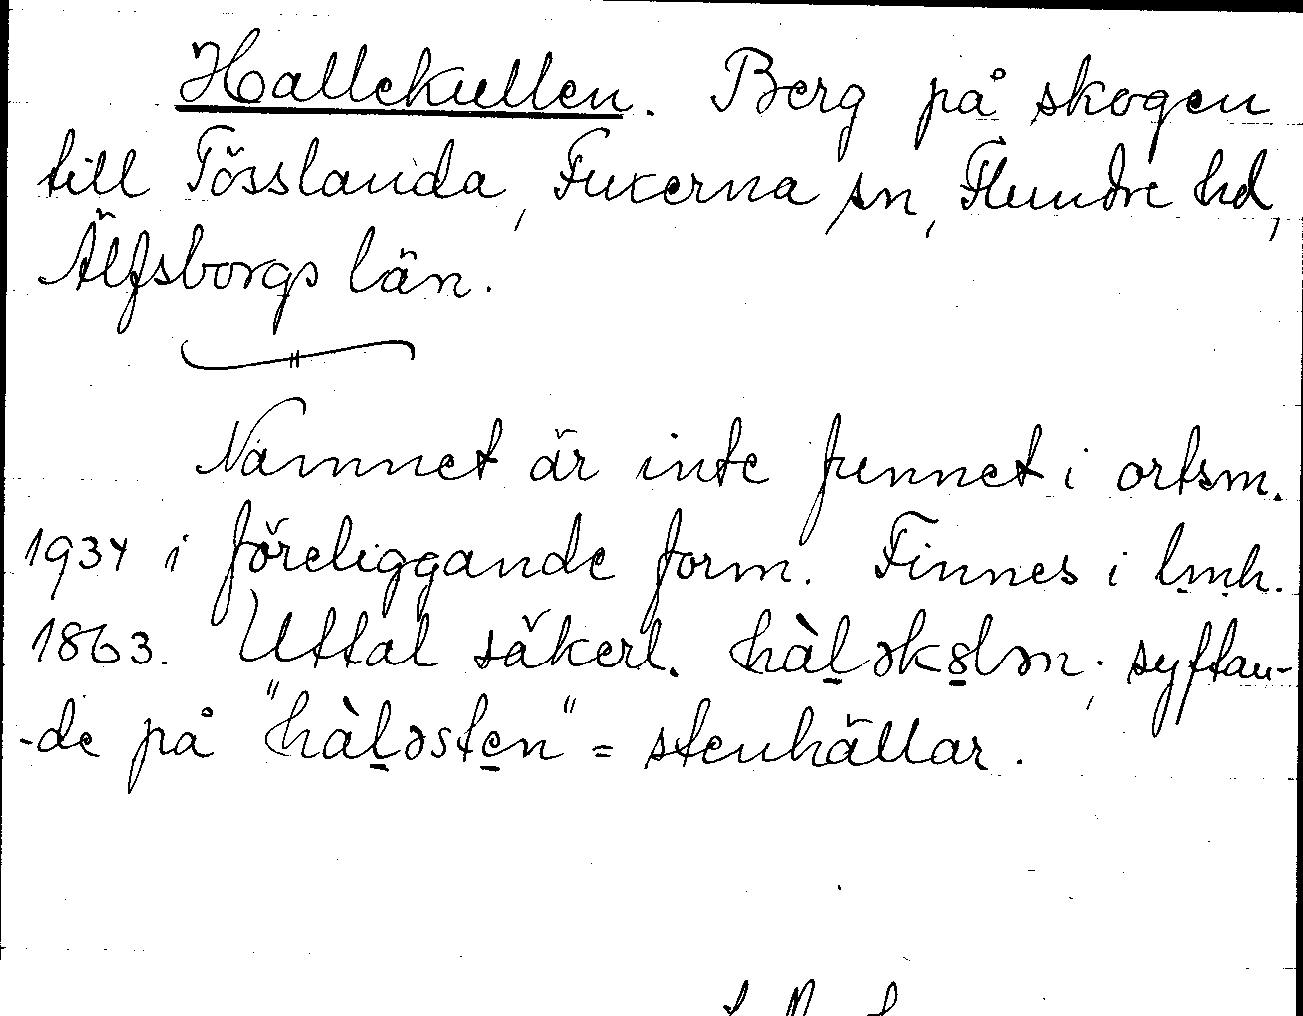 Hallekullen. Berg på skogen
till Tösslanda, Fuxerna sn, Flundre hd,
Älfsborgs län.
Namnet är inte funnet i ortsm.
1934 i föreliggande form. Finnes i lmh.
1863. Uttal säkerl. hàl̠əks̠lən; syftan-
-de på "hàl̠əste̠n" = stenhällar.